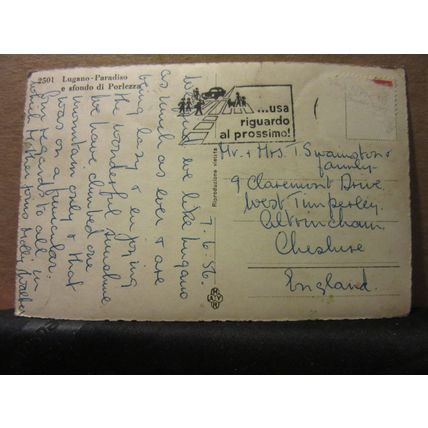 2501 Lugano-Paradiso
e sfondo di Porlezza
7.6.56.
we like Lugano
as much as ever & are
being lazy & enjoying
the wonderful sunshine
We have climbed one
mountain only & that
was on a funicular.
Our regards to all in
which Mother joins
...usa
riguardo
al prossimo!
Riproduzione vietata
Mr. & Mrs T. Swannston &
family
9 Claremont Drive
West Timperley
Altrincham
Cheshire
England